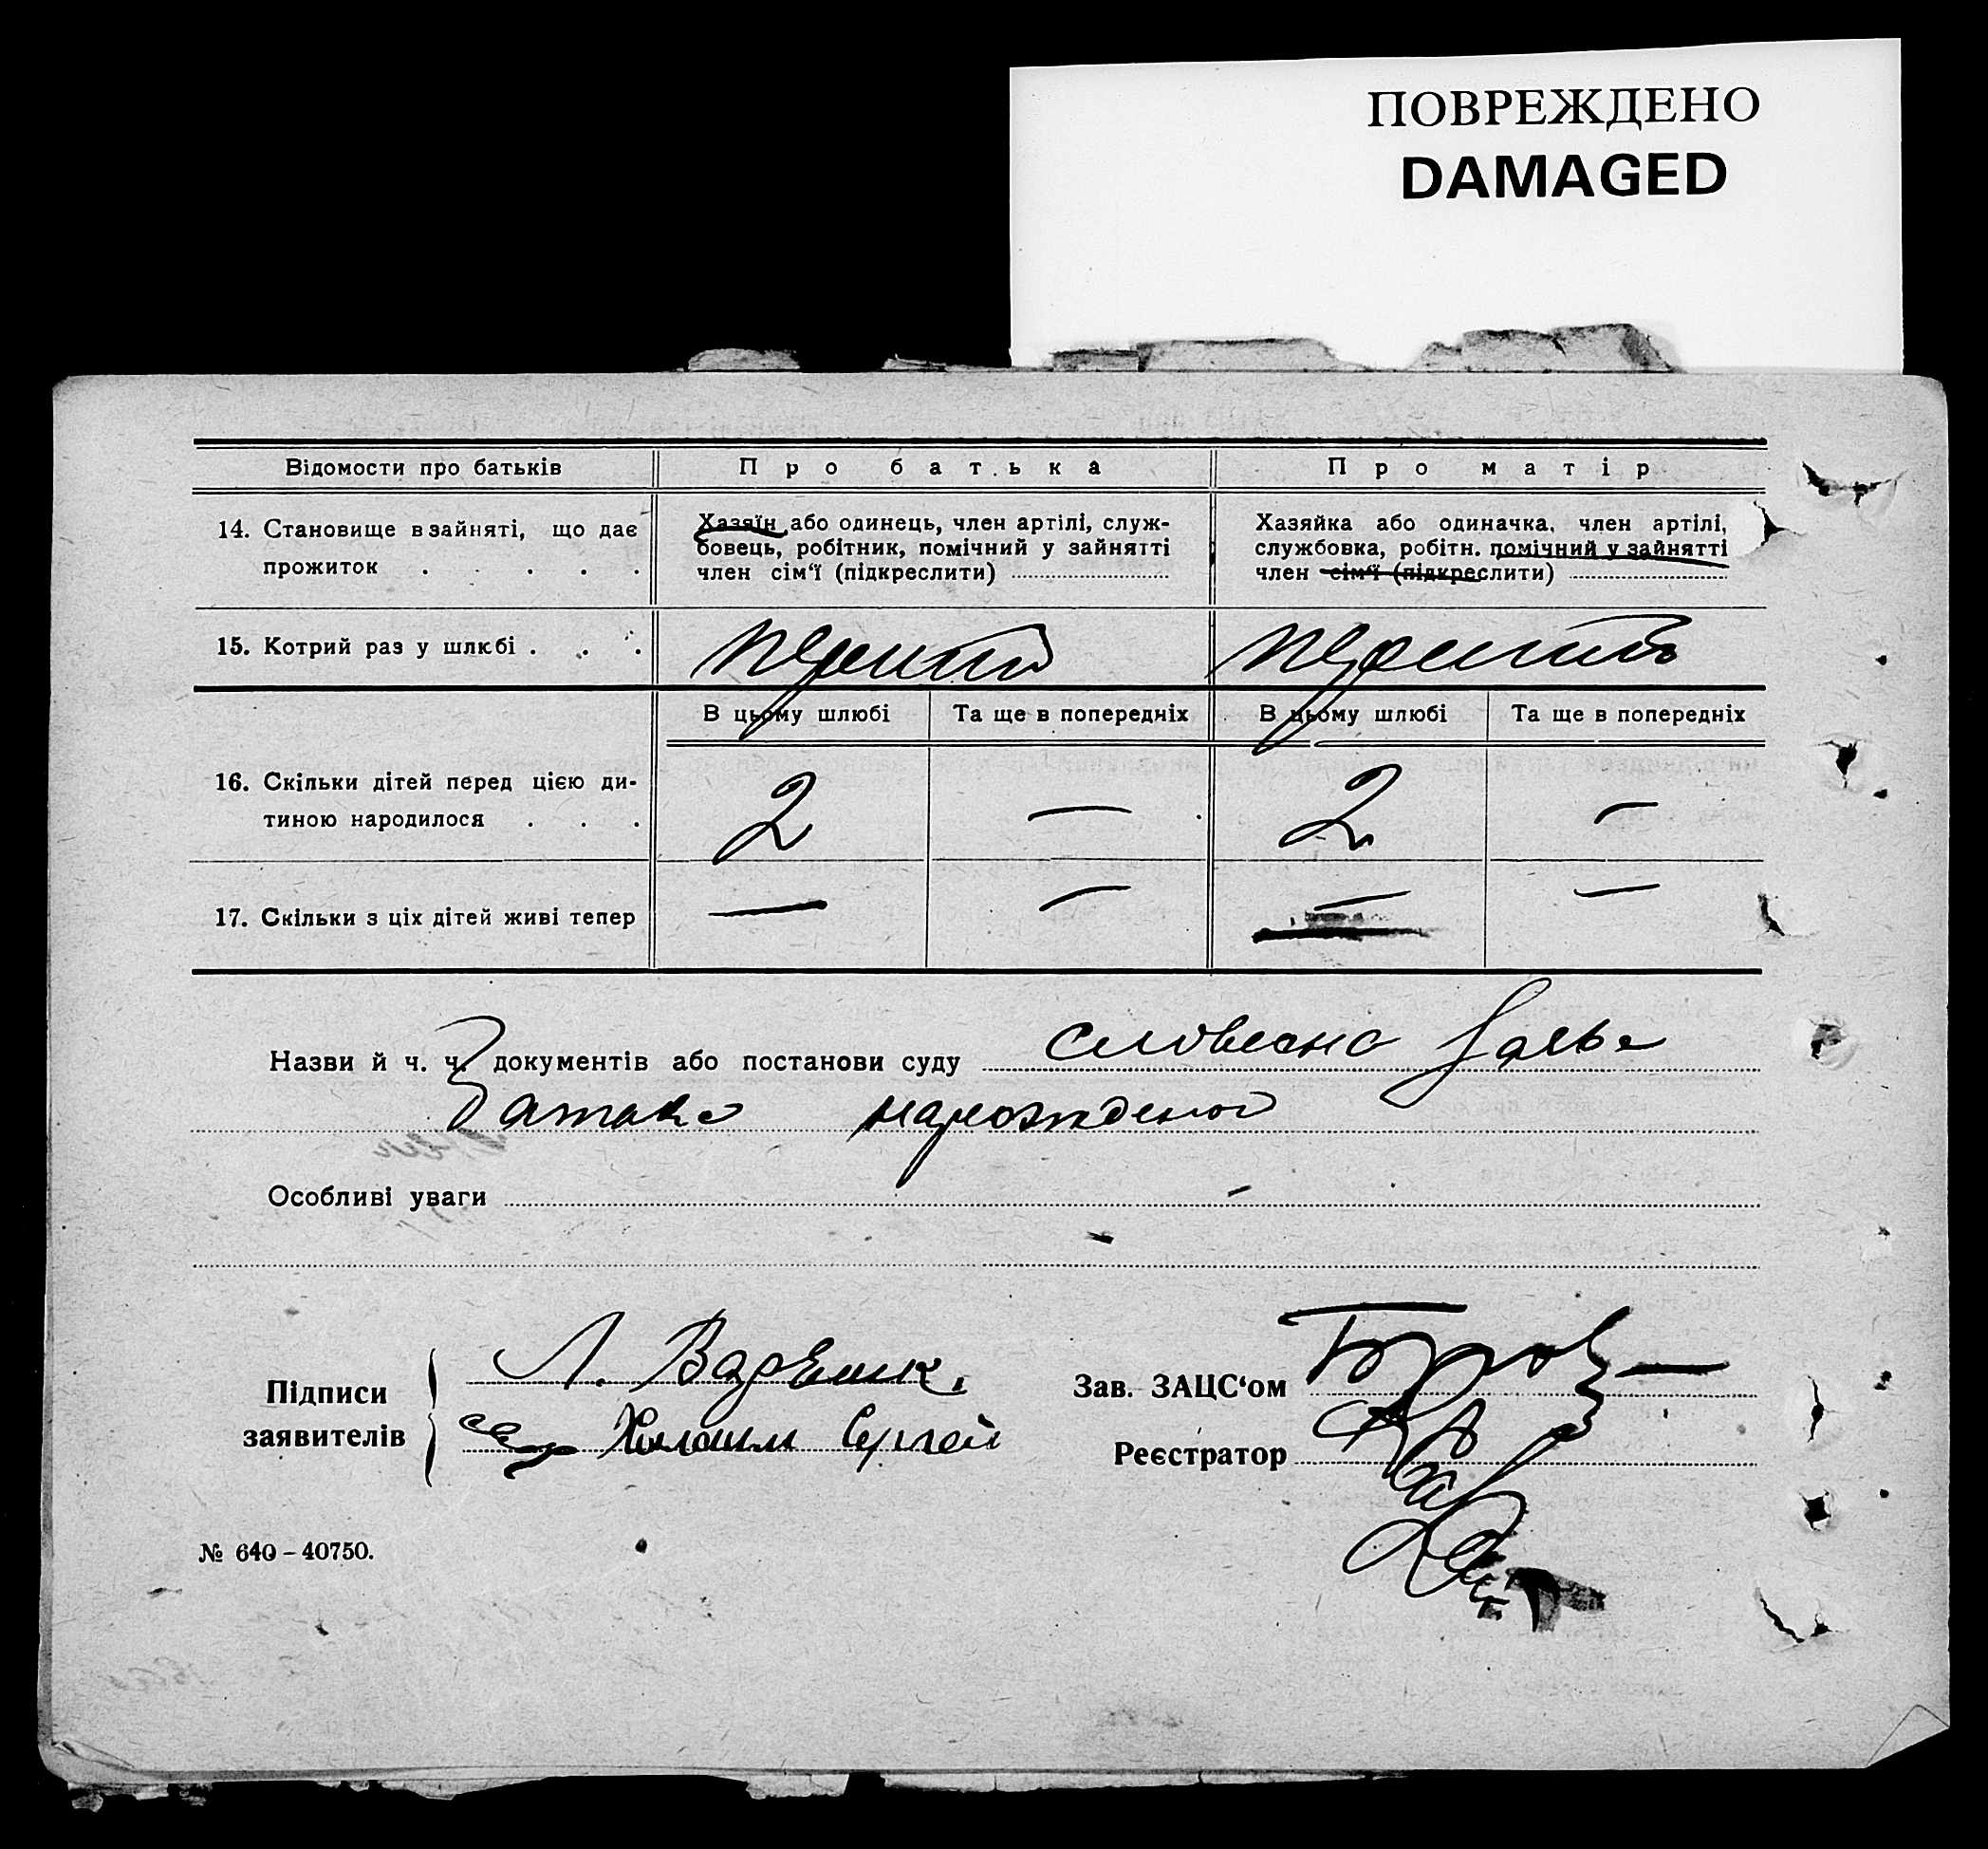 ПОВРЕЖДЕНО
DAMAGED
Відомости про батьків
Про батька
Про матір
14. Становище в зайняті, що дає прожиток . . . . .
Хазяїн або одинець, член артілі, служ-
бовець, робітник, помічний у зайнятті
член сім‘ї (підкреслити)
Хазяйка або одиначка, член артілі,
службовка, робітн. помічний у зайнятті
член сім‘ї (підкреслити)
15. Котрий раз у шлюбі . . .
перший
перший
В цьому шлюбі
Та ще в попередніх
В цьому шлюбі
Та ще в попередніх
16. Скільки дітей перед цією ди-
тиною народилося . . .
2 — 2 —
17. Скільки з ціх дітей живі тепер
— — — —
Назви й ч. ч. документів або постанови суду словесна заява
батька
Особливі уваги —
Підписи
заявителів
Л.
Сергей
Зав. ЗАЦС‘ом
Реєстратор
№ 640 – 40750.